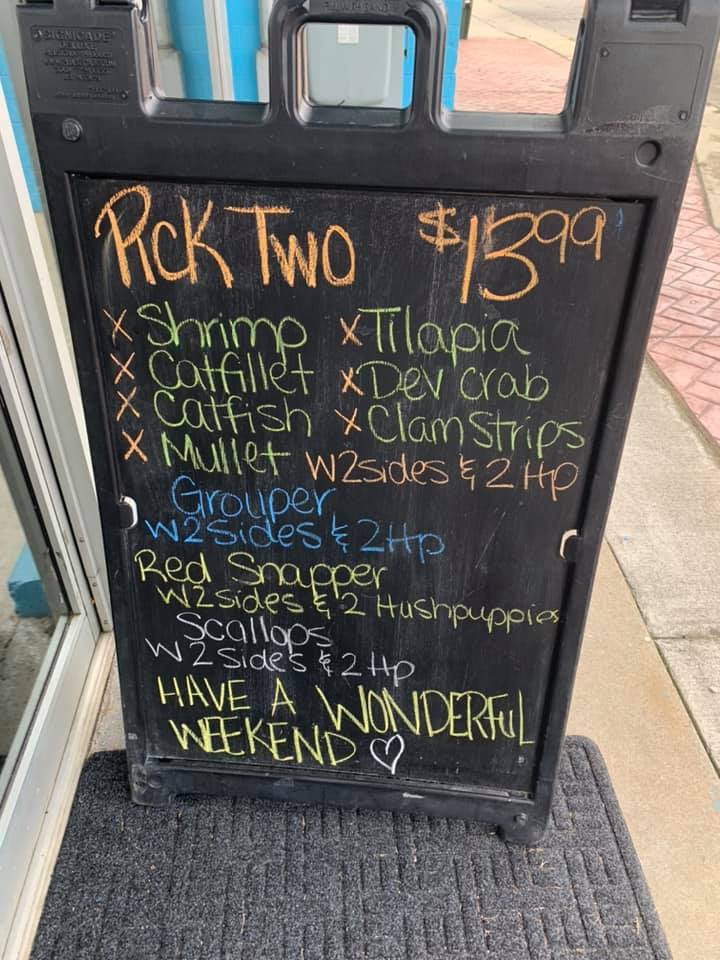 SIGNICADE
DELUXE
Pick Two $13.99
x Shrimp x Tilapia
x Catfillet x Dev crab
x Catfish x Clam Strips
x Mullet W2sides & 2 Hp
Grouper
W2Sides & 2Hp
Red Snapper
W2sides & 2 Hushpuppies
Scallops
W 2 Sides & 2 Hp
HAVE A WONDERFUL
WEEKEND ♡